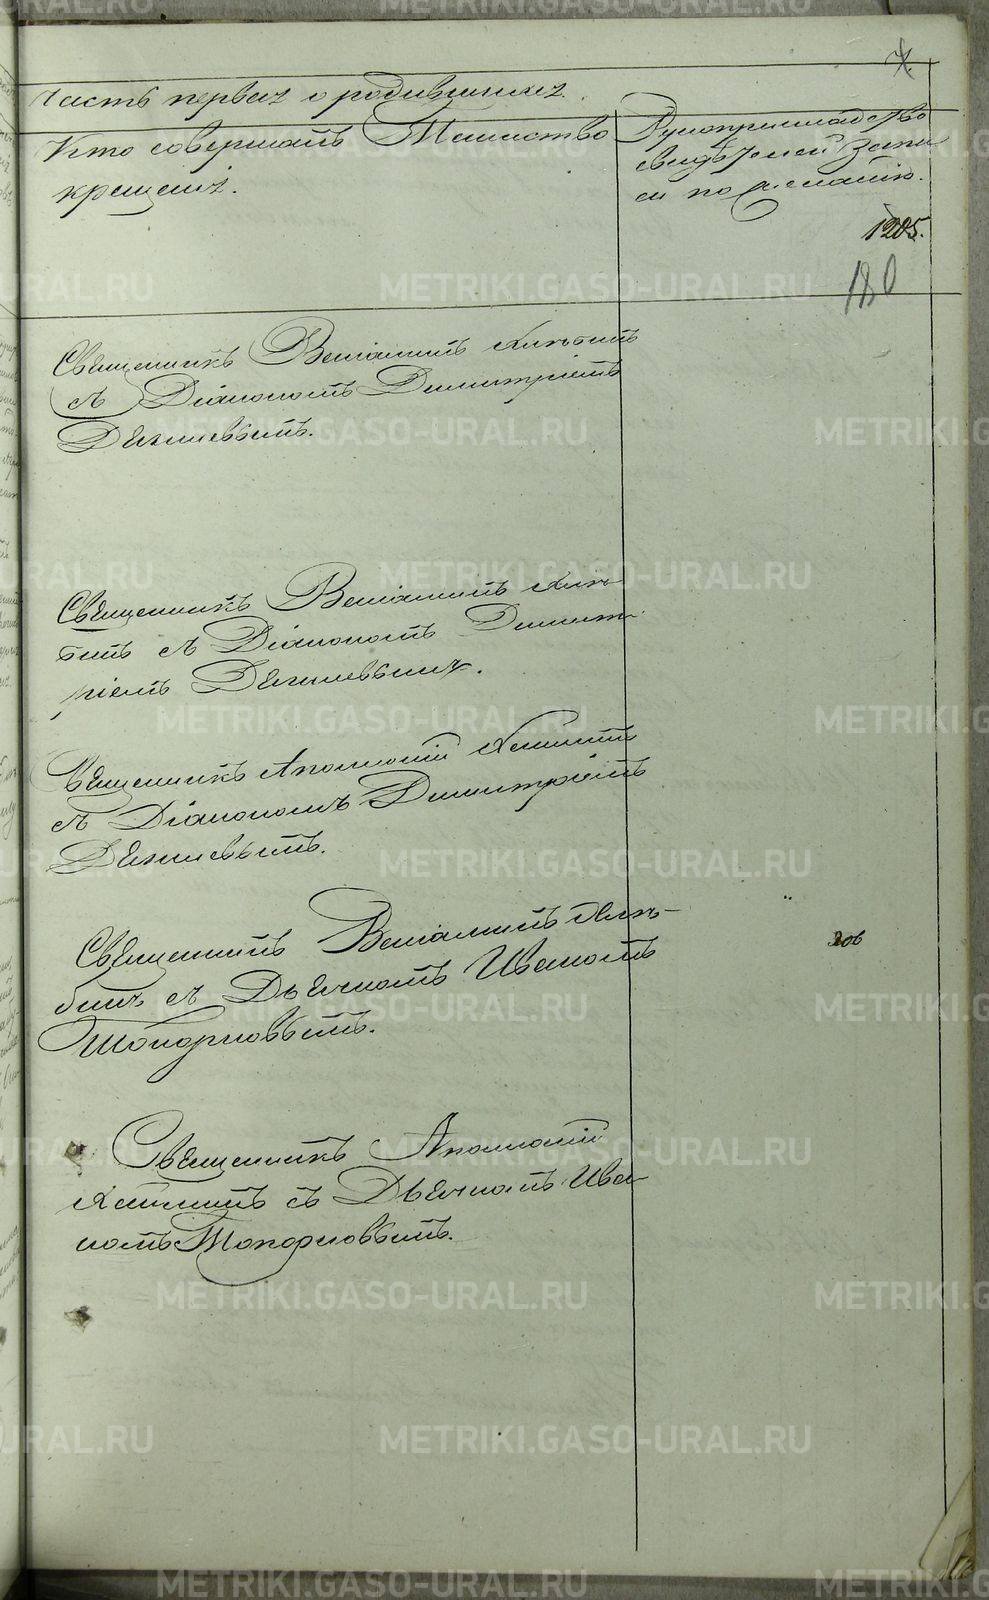 Часть первая о родившихся.
Кто совершалъ Таинство
крещенія.
Рукоприкладство
свидѣтелей запи
си по желанію.
1205.
180
Священникъ Веніаминъ
съ Діакономъ Димитріемъ
Священникъ Веніаминъ
съ Діакономъ Димит-
ріемъ
Священникъ Аполлоній
съ Діакономъ Димитріемъ
Священникъ Веніаминъ
съ Дьячкомъ Иваномъ
Топорковымъ.
206
Священникъ Аполлоній
съ Дьячкомъ Ива-
номъ Топорковымъ.
METRIKI.GASO-URAL.RU